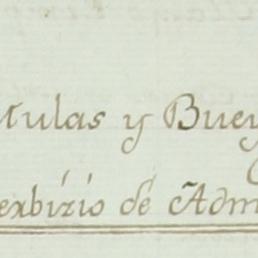 Mulas y Buey
exbizio de Adm